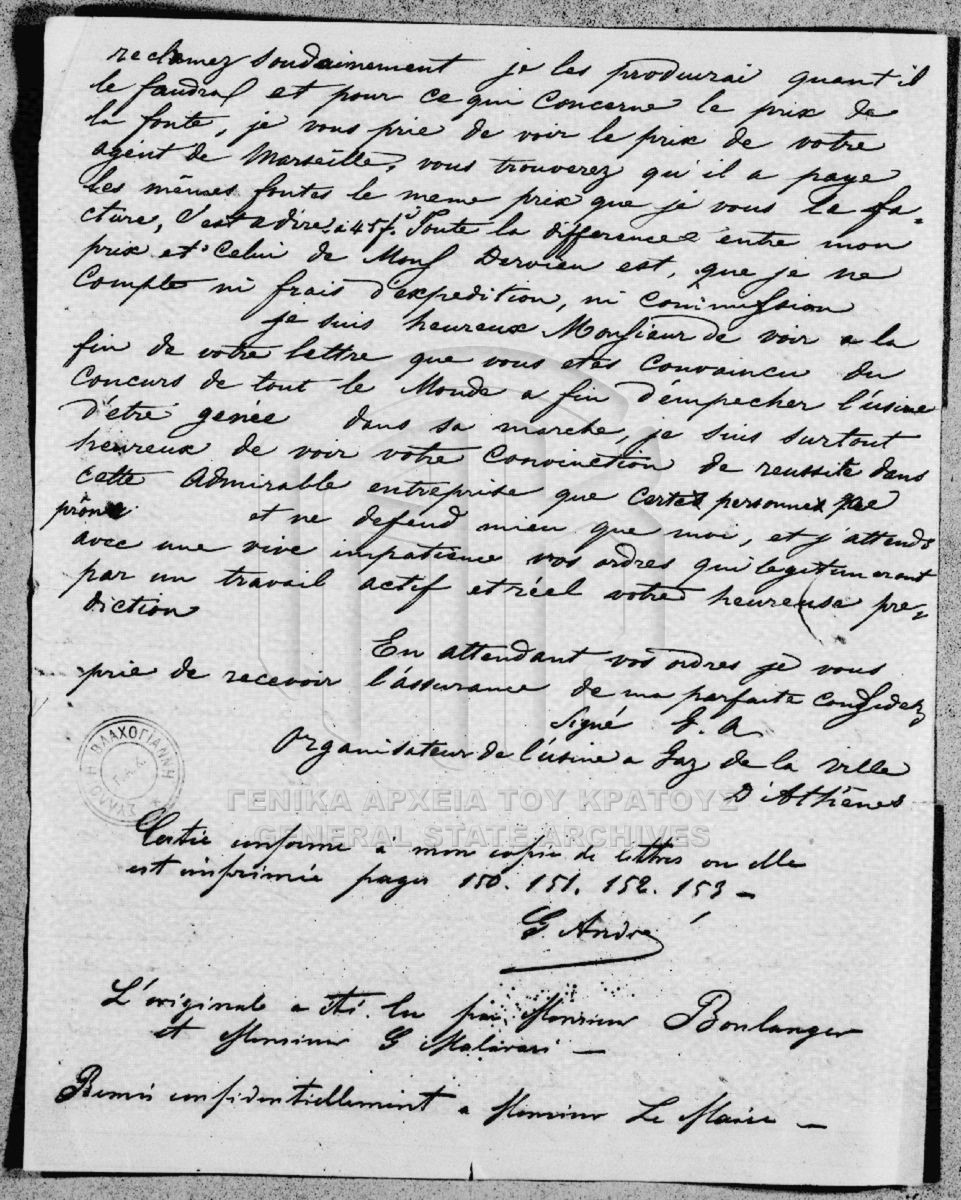 reclamez soudainement je les produirai quant il
le faudra et pour ce qui concerne le prix de
la fonte, je vous prie de voir le prix de votre
agent de Marseille, vous trouverez qu'il a paye
les mêmes fontes le meme prix que je vous la fa-
cture, c'est a dire à 45 f. Toute la difference entre mon
prix et celui de Mons Dervieu est, que je ne
Compte ni frais d'expedition, ni commission
je suis heureux Monsieur de voir a la
fin de votre lettre que vous etes convaincu du
Concurs de tout le Monde a fin d'empecher l'usine
d'etre genée dans sa marche, je suis surtout
heureux de voir votre Convinction de reussite dans
cette Admirable entreprise que certes personnes ne
prône et ne defend mieu que moi, et j'attends
avec une vive impatience vos ordres qui legitimeront
par un travail actif et réel votre heureuse pre-
diction
En attendant vos ordres je vous
prie de recevoir l'assurance de ma parfaite
Signé G. A.
Organisateur de l'usine a Gaz de la ville
D'Athènes
ΣΥΛΛΟΓΗ ΒΛΑΧΟΓΙΑΝΝΗ
Γ.Α.Κ.
ΓΕΝΙΚΑ ΑΡΧΕΙΑ ΤΟΥ ΚΡΑΤΟΥΣ
GENERAL STATE ARCHIVES
conforme à mon copie de lettres ou elle
est imprimée pages 150. 151. 152. 153 -
G. André
L'originale a été lu par Monsieur Boulanger
et Monsieur G
confidentiellement a Monsieur Le Maire -